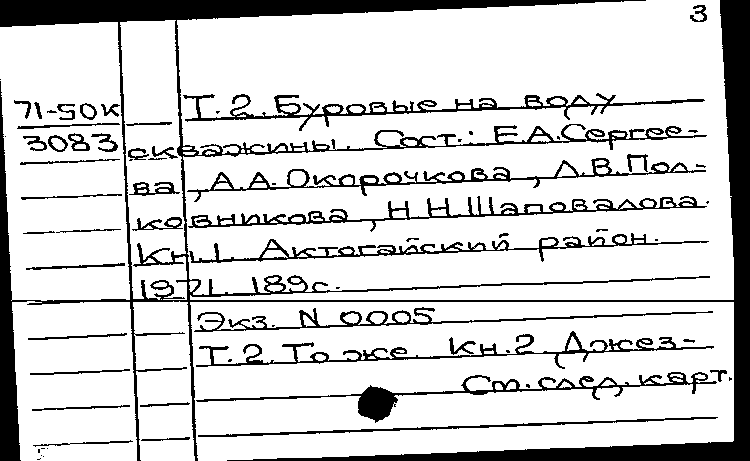 3
71-50к Т.2. Буровые на воду
3083 скважины. Сост.: Е.А.Сергее-
ва, А.А.Окорочкова, Л.В.Пол-
ковникова, Н.Н.Шаповалова.
Кн.1. Актогайский район.
1971. 189с.
Экз. N 0005
Т.2. То же. Кн.2. Джез-
См.след.карт.